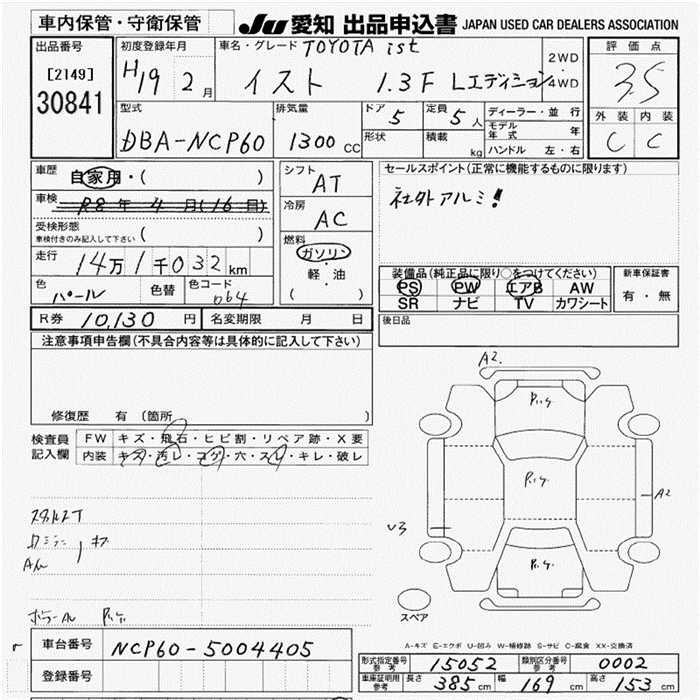 車内保管・守衛保管
JU 愛知 出品申込書 JAPAN USED CAR DEALERS ASSOCIATION
出品番号
[2149]
30841
初度登録年月
H19 2月
車名・グレード TOYOTA ist
イスト 1.3F Lエディション
2WD
・
4WD
評価点
3.5
外装 内装
C C
型式
DBA-NCP60
排気量
1300 CC
ドア 5
形状
定員 5 人
積載 kg
ディーラー・並行
モデル年式 年
ハンドル 左・右
車歴 自家用・( )
車検 R8年4月(16日)
受検形態
車検付きのみ記入して下さい ( )
走行 14万1千032km
色 パール 色替 色コード 064
シフト AT
冷房 AC
燃料
ガソリン
・
軽・油
( )
セールスポイント(正常に機能するものに限ります)
社外アルミ!
装備品(純正品に限り○をつけてください)
PS PW エアB AW
SR ナビ TV カワシート
新車保証書
有・無
R券 10,130 円 名変期限 月 日
後日品
注意事項申告欄(不具合内容等は具体的に記入して下さい)
修復歴 有(箇所 )
検査員記入欄
FW キズ・飛石・ヒビ割・リペア跡・X要
内装 キズ・汚レ・コゲ・穴・スレ・キレ・破レ
A2
A2
U3
スペア
A-キズ E-エクボ U-凹み W-補修跡 S-サビ C-腐食 XX-交換済
車台番号 NCP60-5004405
登録番号
形式指定番号参考 15052 類別区分番号参考 0002
車庫証明用参考 長さ 385cm 幅 169cm 高さ 153cm